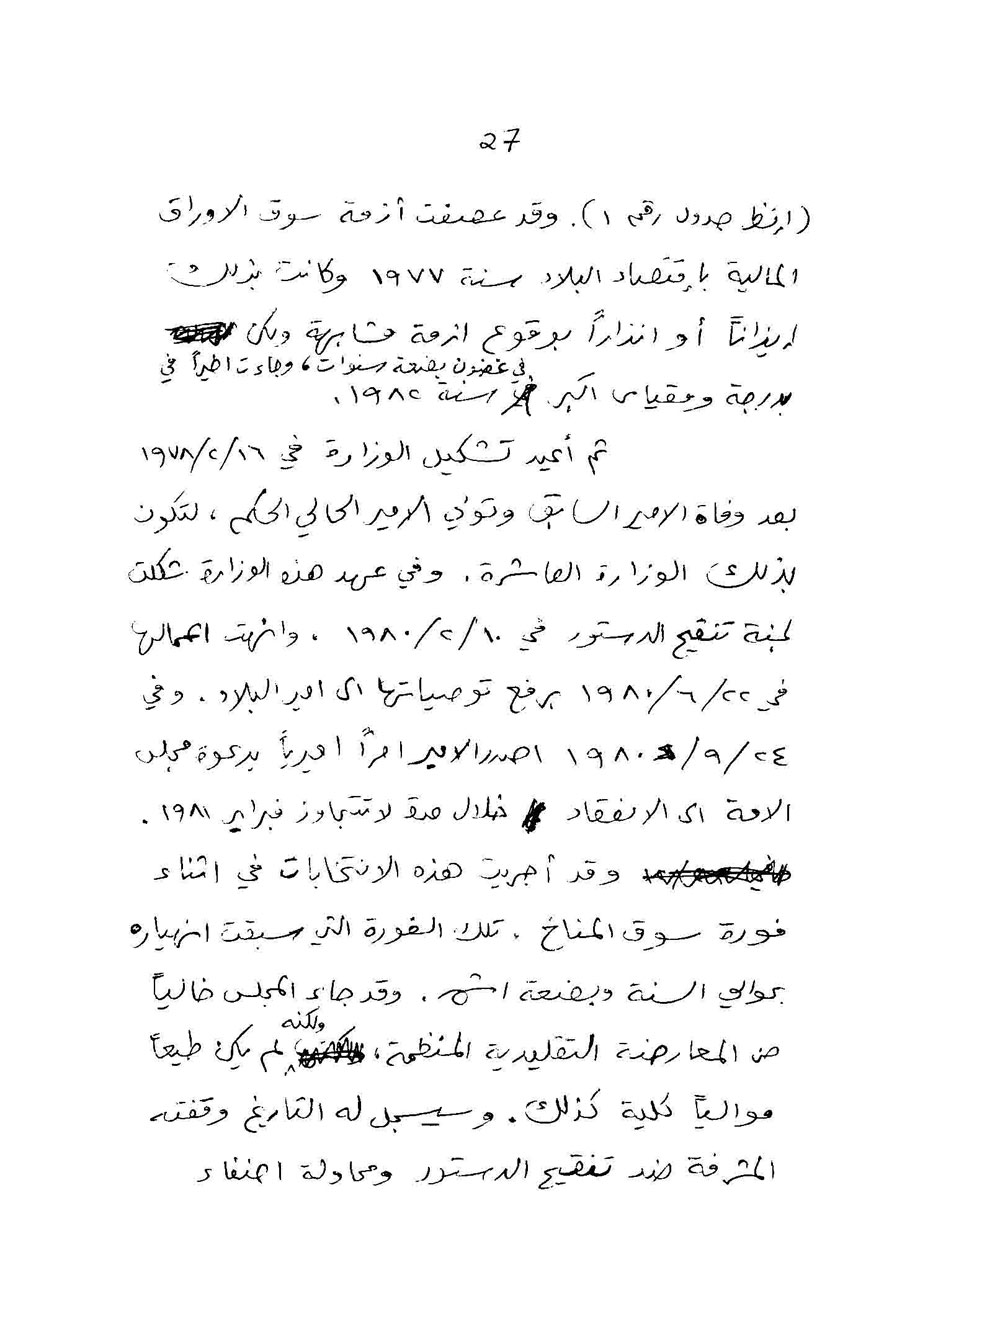 27
(انظر جدول رقم ١). وقد عصفت أزمة سوق الاوراق
المالية بإقتصاد البلاد سنة ١٩٧٧ وكانت بذلك
ايذاناً أو انذاراً بوقوع ازمة مشابهة ولكن
في غضون بضعة سنوات، وجاءت اخيراً في
بدرجة ومقياس اكبر سنة ١٩٨٢.
ثم أعيد تشكيل الوزارة في ١٩٧٨/٢/١٦
بعد وفاة الامير السابق وتولي الامير الحالي الحكم، لتكون
بذلك الوزارة العاشرة. وفي عهد هذه الوزارة شكلت
لجنة تنقيح الدستور في ١٩٨٠/٢/١٠. وانهت اعمالها
في ١٩٨٠/٦/٢٢ برفع توصياتها الى امير البلاد. وفي
١٩٨٠/٩/٢٤ اصدر الامير امراً اميرياً بدعوة مجلس
الامة الى الانعقاد خلال مدة لا تتجاوز فبراير ١٩٨١.
وقد أجريت هذه الانتخابات في اثناء
فورة سوق المناخ. تلك الفورة التي سبقت انهياره
بحوالي السنة وبضعة اشهر. وقد جاء المجلس خالياً
من المعارضة التقليدية المنظمة، ولكنه لم يكن طيعاً
موالياً كلية كذلك. وسيسجل له التاريخ وقفته
المشرفة ضد تنقيح الدستور ومحاولة اضفاء